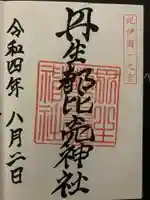 紀伊國一之宮
丹生都比売神社
令和四年
八月二日